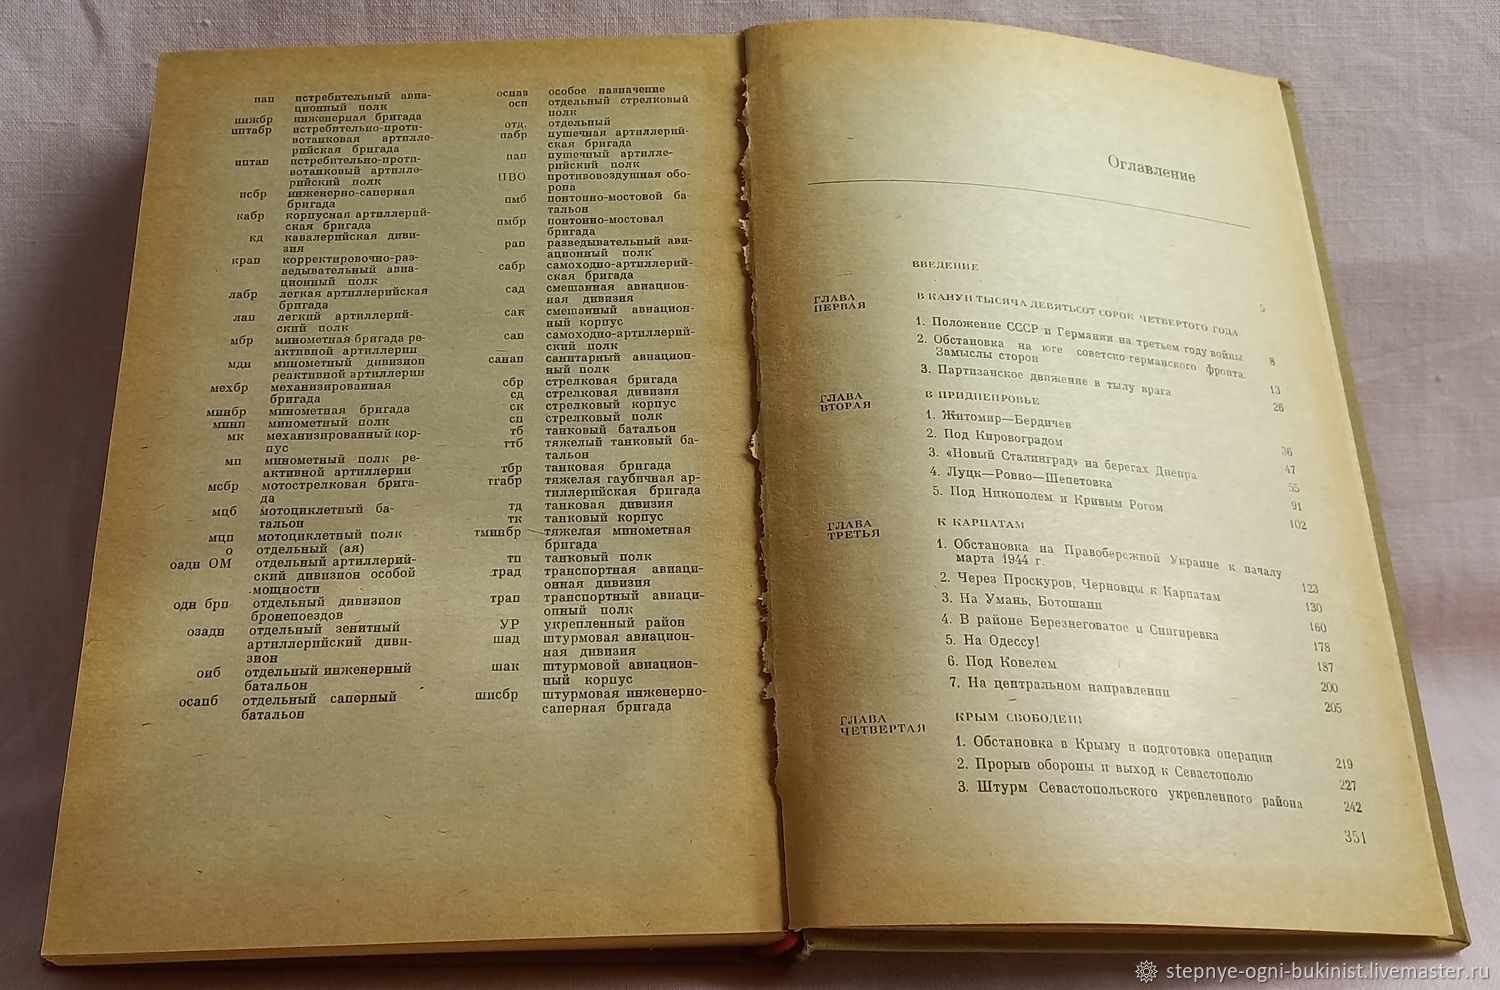 иап истребительный авиа-
ционный полк
инжбр инженерная бригада
иптабр истребительно-проти-
вотанковая артилле-
рийская бригада
иптап истребительно-проти-
вотанковый артилле-
рийский полк
исбр инженерно-саперная
бригада
кабр корпусная артиллерий-
ская бригада
кд кавалерийская диви-
зия
крап корректировочно-раз-
ведывательный авиа-
ционный полк
лабр легкая артиллерийская
бригада
лап легкий артиллерий-
ский полк
мбр минометная бригада ре-
активной артиллерии
мдн минометный дивизион
реактивной артиллерии
мехбр механизированная
бригада
минбр минометная бригада
минп минометный полк
мк механизированный кор-
пус
мп минометный полк ре-
активной артиллерии
мсбр мотострелковая брига-
да
мцб мотоциклетный ба-
тальон
мцп мотоциклетный полк
о отдельный (ая)
оадн ОМ отдельный артиллерий-
ский дивизион особой
мощности
одн брп отдельный дивизион
бронепоездов
озадн отдельный зенитный
артиллерийский диви-
зион
оиб отдельный инженерный
батальон
осапб отдельный саперный
батальон
осназ особое назначение
осп отдельный стрелковый
полк
отд. отдельный
пабр пушечная артиллерий-
ская бригада
пап пушечный артилле-
рийский полк
ПВО противовоздушная обо-
рона
пмб понтонно-мостовой ба-
тальон
пмбр понтонно-мостовая
бригада
рап разведывательный ави-
ационный полк
сабр самоходно-артиллерий-
ская бригада
сад смешанная авиацион-
ная дивизия
сак смешанный авиацион-
ный корпус
сап самоходно-артиллерий-
ский полк
санап санитарный авиацион-
ный полк
сбр стрелковая бригада
сд стрелковая дивизия
ск стрелковый корпус
сп стрелковый полк
тб танковый батальон
ттб тяжелый танковый ба-
тальон
тбр танковая бригада
тгабр тяжелая гаубичная ар-
тиллерийская бригада
тд танковая дивизия
тк танковый корпус
тминбр тяжелая минометная
бригада
тп танковый полк
трад транспортная авиаци-
онная дивизия
трап транспортный авиаци-
онный полк
УР укрепленный район
шад штурмовая авиацион-
ная дивизия
шак штурмовой авиацион-
ный корпус
шисбр штурмовая инженерно-
саперная бригада
Оглавление
ВВЕДЕНИЕ 5
ГЛАВА
ПЕРВАЯ
В КАНУН ТЫСЯЧА ДЕВЯТЬСОТ СОРОК ЧЕТВЕРТОГО ГОДА
1. Положение СССР и Германии на третьем году войны 8
2. Обстановка на юге советско-германского фронта.
Замыслы сторон 13
3. Партизанское движение в тылу врага 26
ГЛАВА
ВТОРАЯ
В ПРИДНЕПРОВЬЕ
1. Житомир—Бердичев 36
2. Под Кировоградом 47
3. «Новый Сталинград» на берегах Днепра 55
4. Луцк—Ровно—Шепетовка 91
5. Под Никополем и Кривым Рогом 102
ГЛАВА
ТРЕТЬЯ
К КАРПАТАМ
1. Обстановка на Правобережной Украине к началу
марта 1944 г. 123
2. Через Проскуров, Черновцы к Карпатам 130
3. На Умань, Ботошани 160
4. В районе Березнеговатое и Снигиревка 178
5. На Одессу! 187
6. Под Ковелем 200
7. На центральном направлении 205
ГЛАВА
ЧЕТВЕРТАЯ
КРЫМ СВОБОДЕН!
1. Обстановка в Крыму и подготовка операции 219
2. Прорыв обороны и выход к Севастополю 227
3. Штурм Севастопольского укрепленного района 242
351
stepnye-ogni-bukinist.livemaster.ru